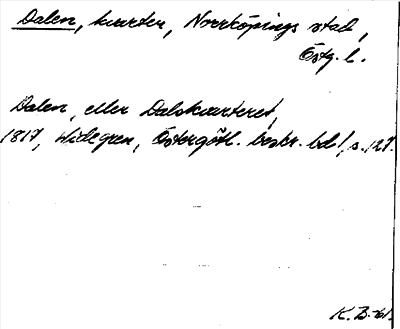 Dalen, kvarter, Norrköpings stad,
Östg. l.
Dalen, eller Dalskvarteret,
1817, Widegren, Östergötl. beskr. bd 1, s. 127.
K. B-n.